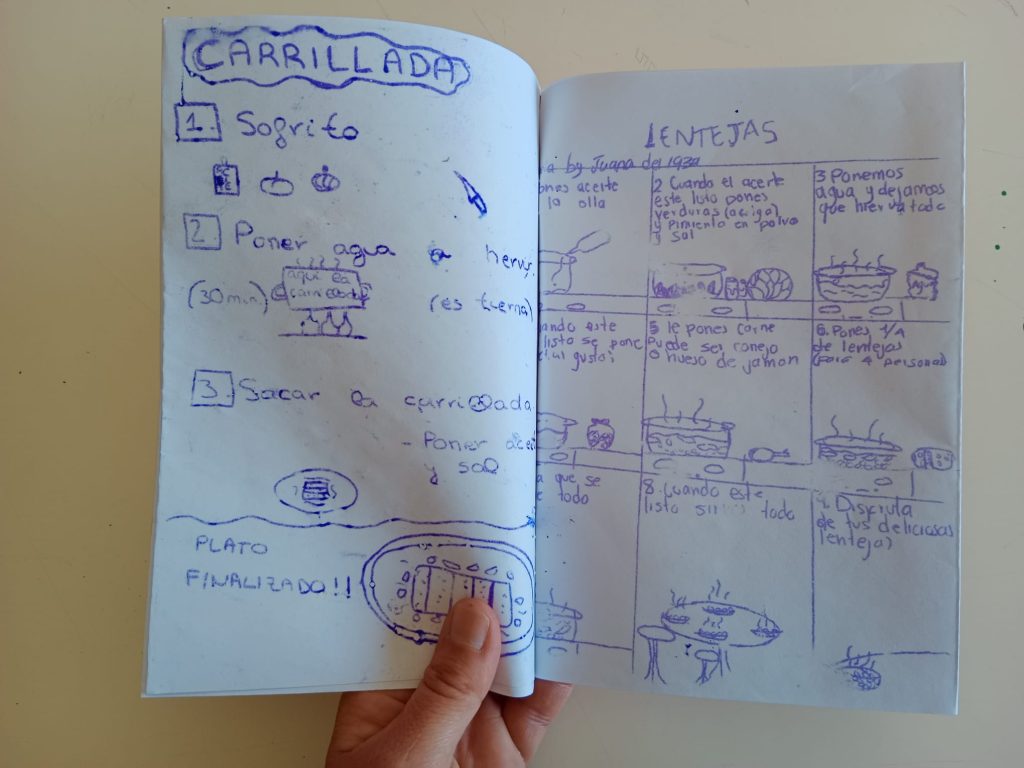 CARRILLADA
1. Sofrito
2. Poner agua a hervir
(30 min)
aquí la
carrillada
(es tierna)
3. Sacar la carrillada
- Poner aceit
y sal
PLATO
FINALIZADO!!
LENTEJAS
by Juana de 1939
ones aceite
la olla
2 Cuando el aceite
este listo pones
verduras (acelga)
y pimiento en polvo
y sal
3 Ponemos
agua y dejamos
que hierva todo
ando este
listo se pone
al gusto
5 le pones carne
puede ser conejo
o hueso de jamon
6. Pones 1/4
de lentejas
(para 4 personas)
a que se
todo
8. Cuando este
listo todo
9. Disfruta
de tus deliciosas
lentejas